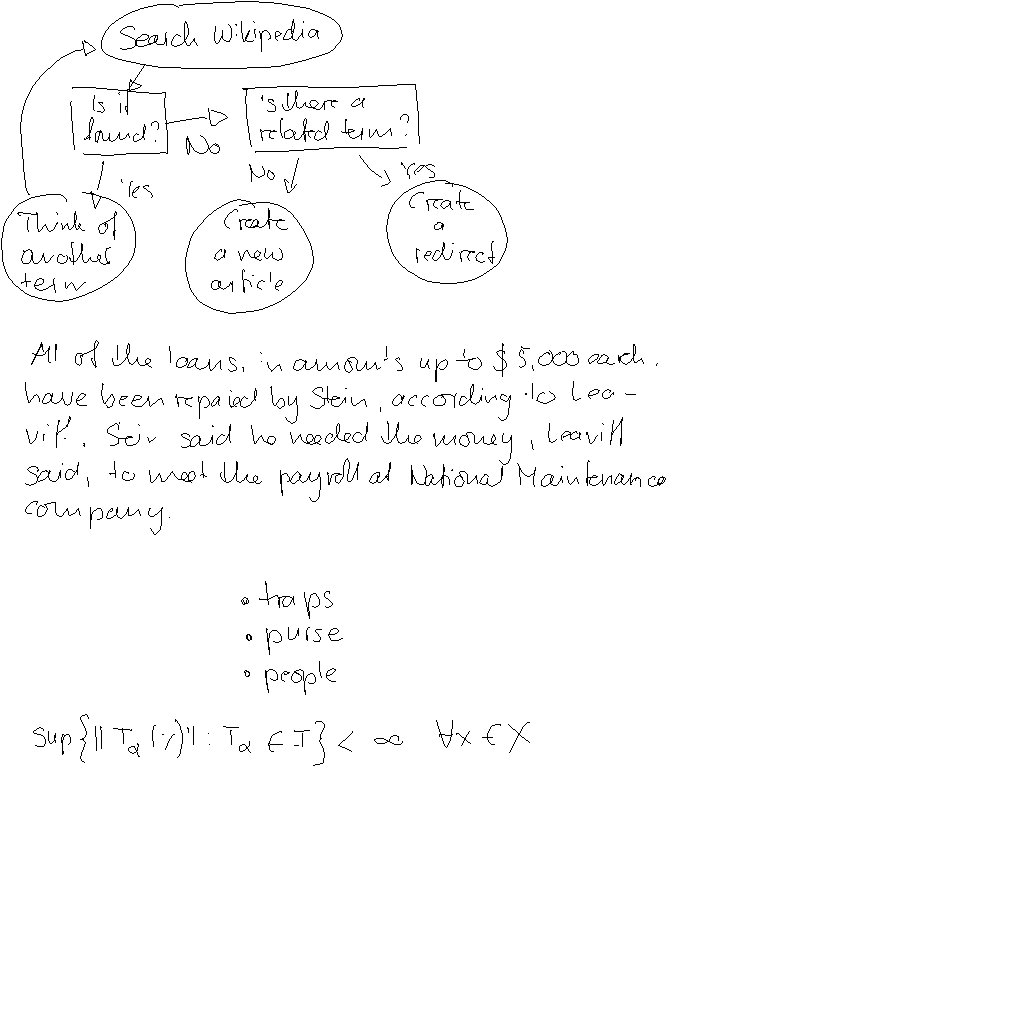 Search Wikipedia
Is it
found?
No
Is there a
related term?
Yes
No
Yes
Think of
another
term
Create
a new
article
Create
a
redirect
All of the loans, in amounts up to $5,000 each,
have been repaid by Stein, according to Lea-
vitt. Stein said he needed the money, Leavitt
said, to meet the payroll at National Maintenance
company.
• traps
• purse
• people
sup{|| T_α (x) || : T_α ∈ J} < ∞ ∀x ∈ X